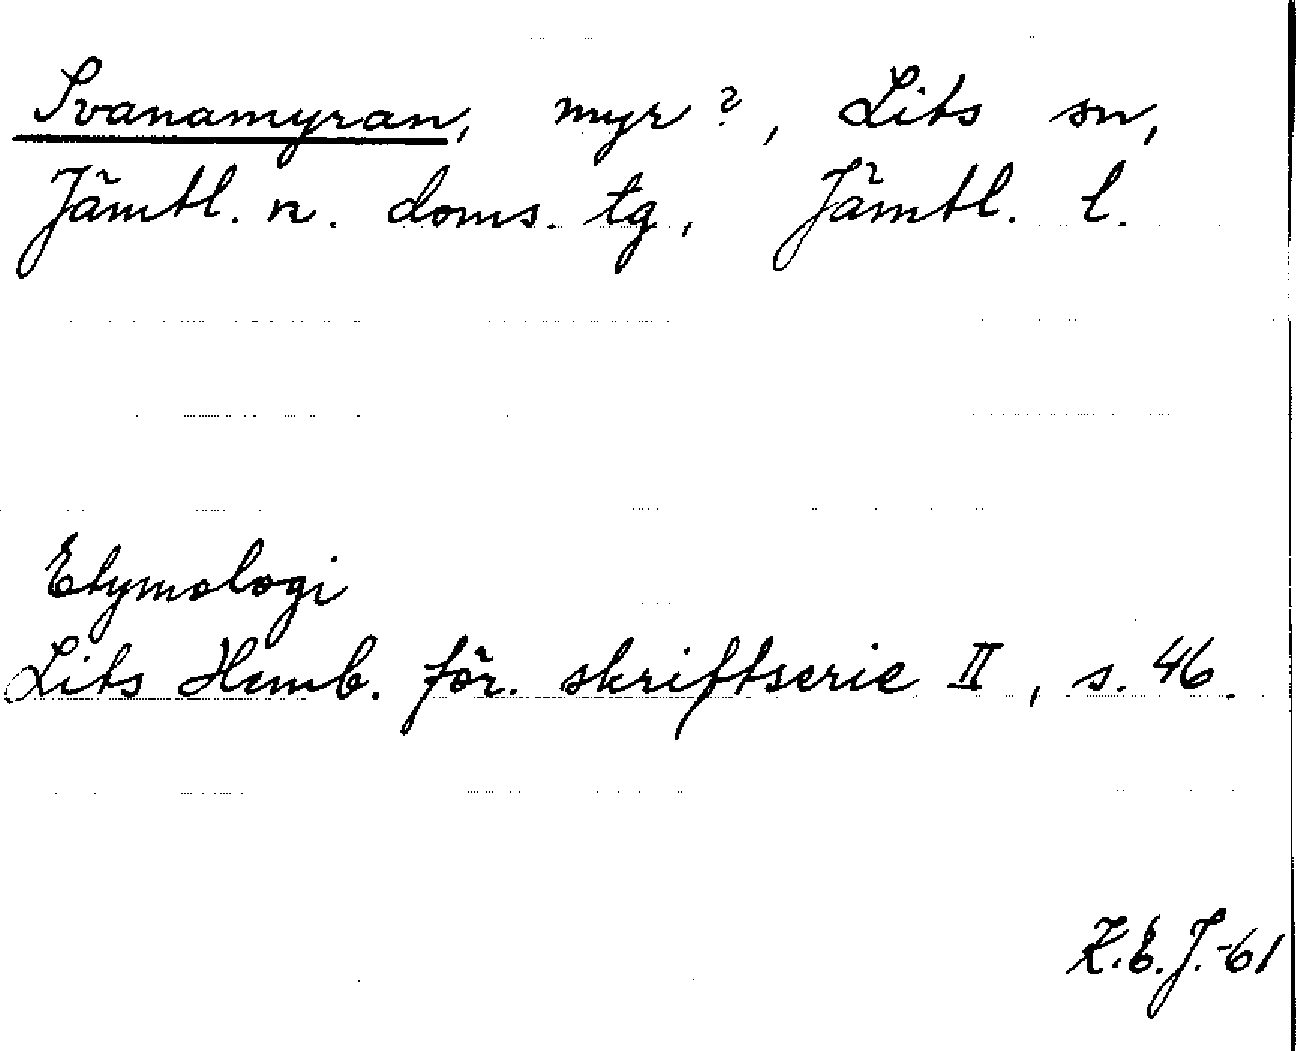 Svanamyran, myr?, Lits sn,
Jämtl. n. doms. tg, Jämtl. l.
Etymologi
Lits Hemb. för. skriftserie II, s. 46.
K.E.J.-61